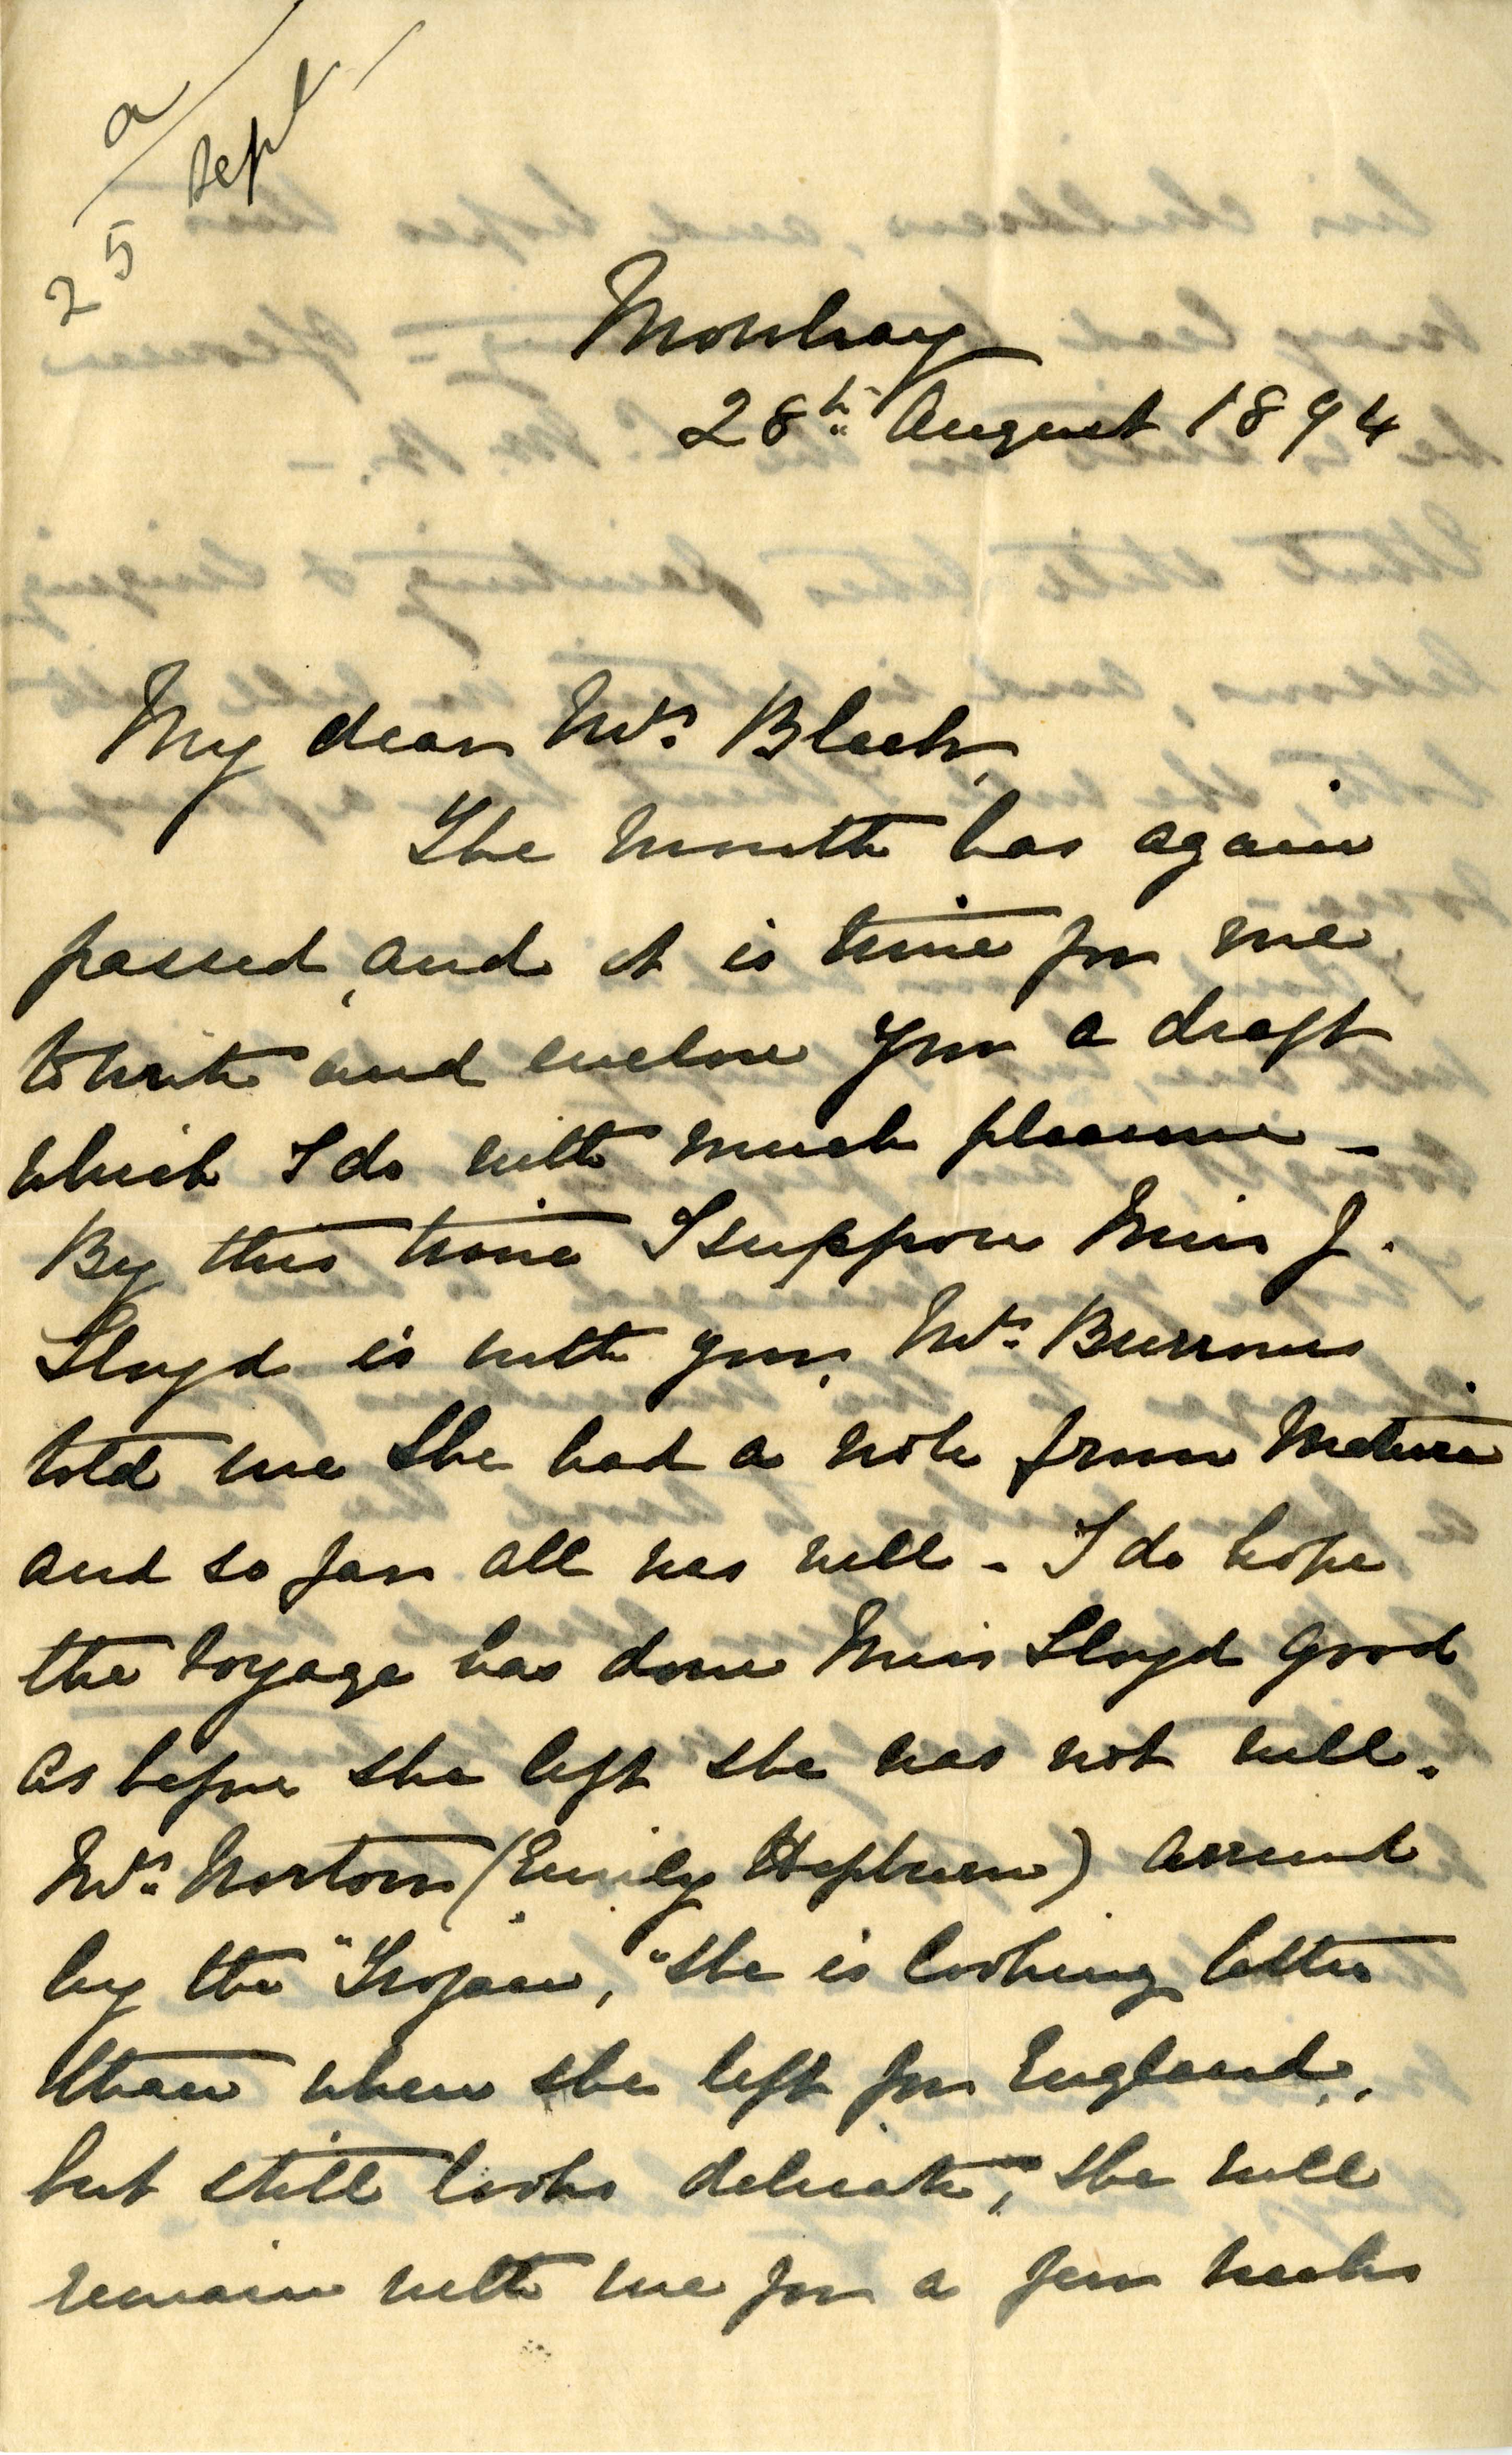 a
25 Sept
Mowbray
28th August 1894
My dear Mrs. Bleek,
The month has again
passed, and it is time for me
to write and enclose you a draft
which I do with much pleasure –
By this time I suppose Miss J.
Lloyd is with you, Mrs. Burrows
told me she had a note from Madeira
and so far all was well – I do hope
the voyage has done Miss Lloyd good
as before she left she was not well.
Mrs. Norton (Emily Hepburn) arrived
by the "Trojan," she is looking better
than when she left for England,
but still looks delicate, she will
remain with me for a few weeks